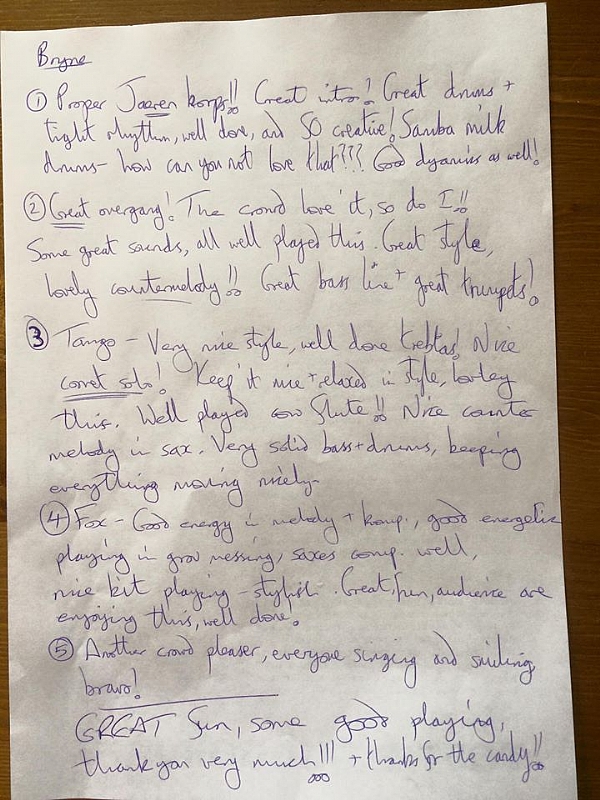 Bryne
① Proper Jaeren korps!! Great intro! Great drums +
tight rhythm, well done, and SO creative! Samba milk
drums - how can you not love that??? Good dynamics as well!
② Great overgang! The crowd love it, so do I!!
Some great sounds, all well played this. Great style,
lovely countermelody!! Great bass line + great trumpets!
③ Tango - Very nice style, well done trebles! Nice
cornet solo! Keep it nice + relaxed in style, lovely
this. Well played cow flute!! Nice counter
melody in sax. Very solid bass + drums, keeping
everything moving nicely.
④ Fox - Good energy in melody + komp., good energetic
playing in grov messing, saxes comp. well,
nice kit playing - stylish. Great fun, audience are
enjoying this, well done.
⑤ Another crowd pleaser, everyone singing and smiling
bravo!
GREAT fun, some good playing,
thank you very much!!! + thanks for the candy!!